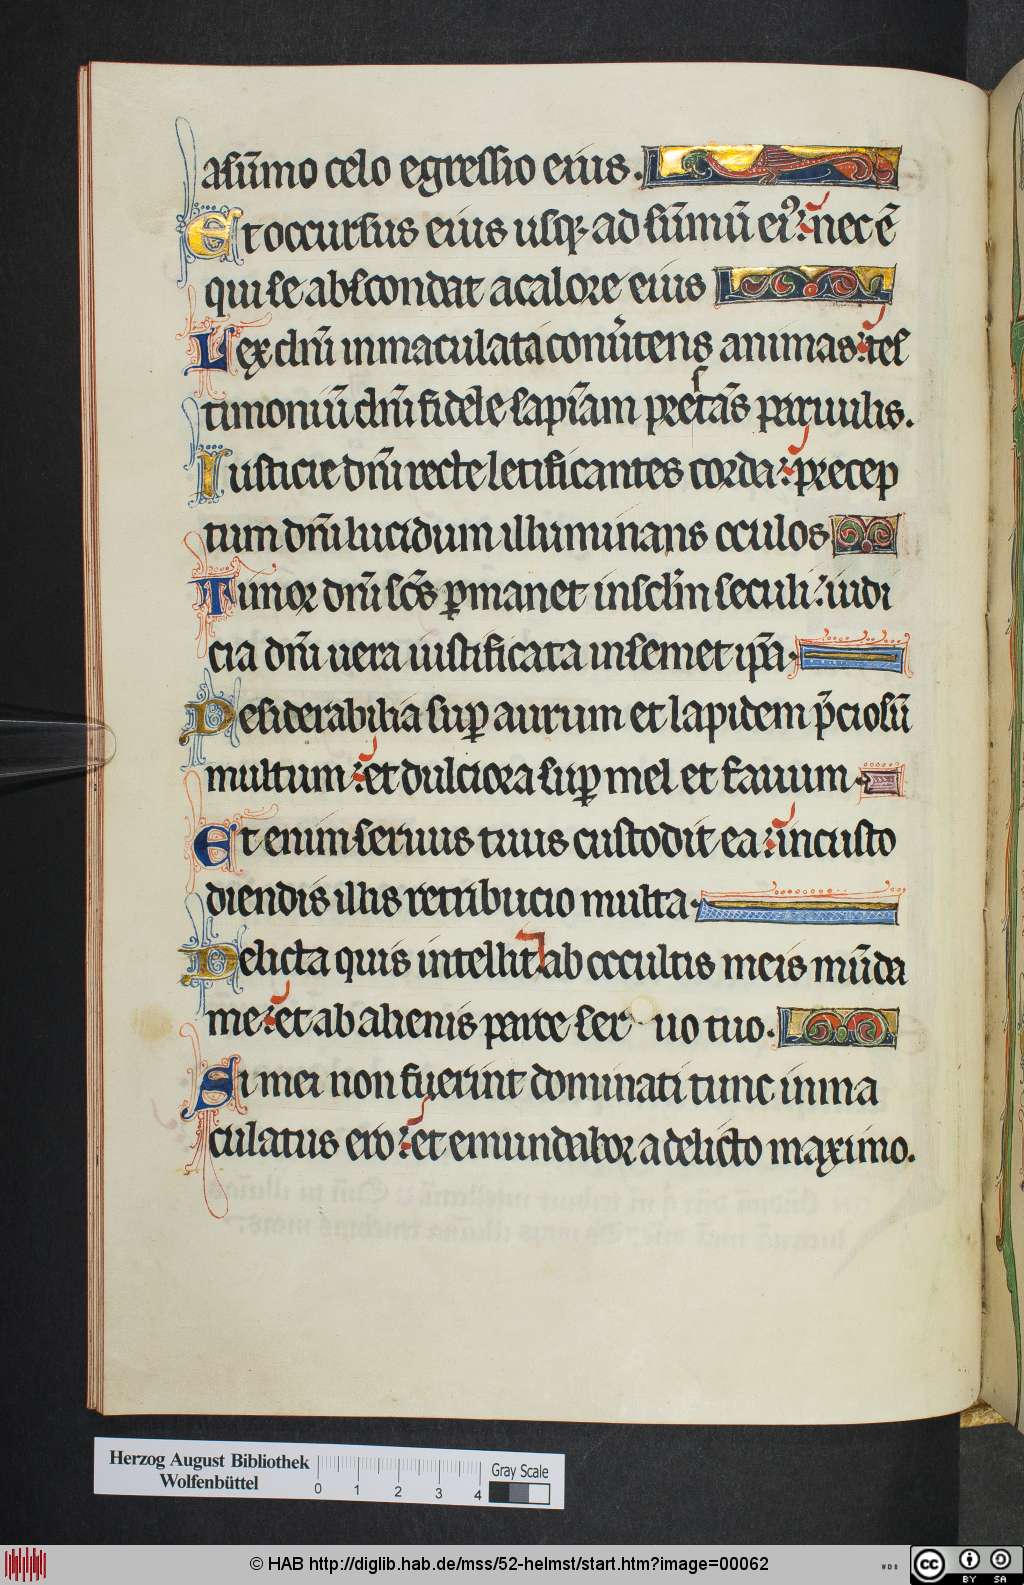 asūmo celo egressio eius.
Et occursus eius usq; ad sūmū ei⁹: nec ē
qui se abscondat a calore eius
Lex dn̄i inmaculata conuͬtens animas: tes
timoniū dn̄i fidele sapīam prestās paruulis.
Iusticie dn̄i recte letificantes corda: precep
tum dn̄i lucidum illuminans oculos
Timor dn̄i scs̄ ꝑmanet in sclm̄ seculi: iudi
cia dn̄i uera iustificata in semet ip̄a.
Desiderabilia suꝑ aurum et lapidem p̄ciosū
multum: et dulciora suꝑ mel et fauum.
Et enim seruus tuus custodit ea: in custo
diendis illis retribucio multa.
Delicta quis intellit ab occultis meis mūda
me: et ab alienis parce ser uo tuo.
Si mei non fuerint dominati tunc inma
culatus ero: et emundabor a delicto maximo.
Herzog August Bibliothek
Wolfenbüttel
0 1 2 3 4
Gray Scale
© HAB http://diglib.hab.de/mss/52-helmst/start.htm?image=00062
WDB
cc BY SA